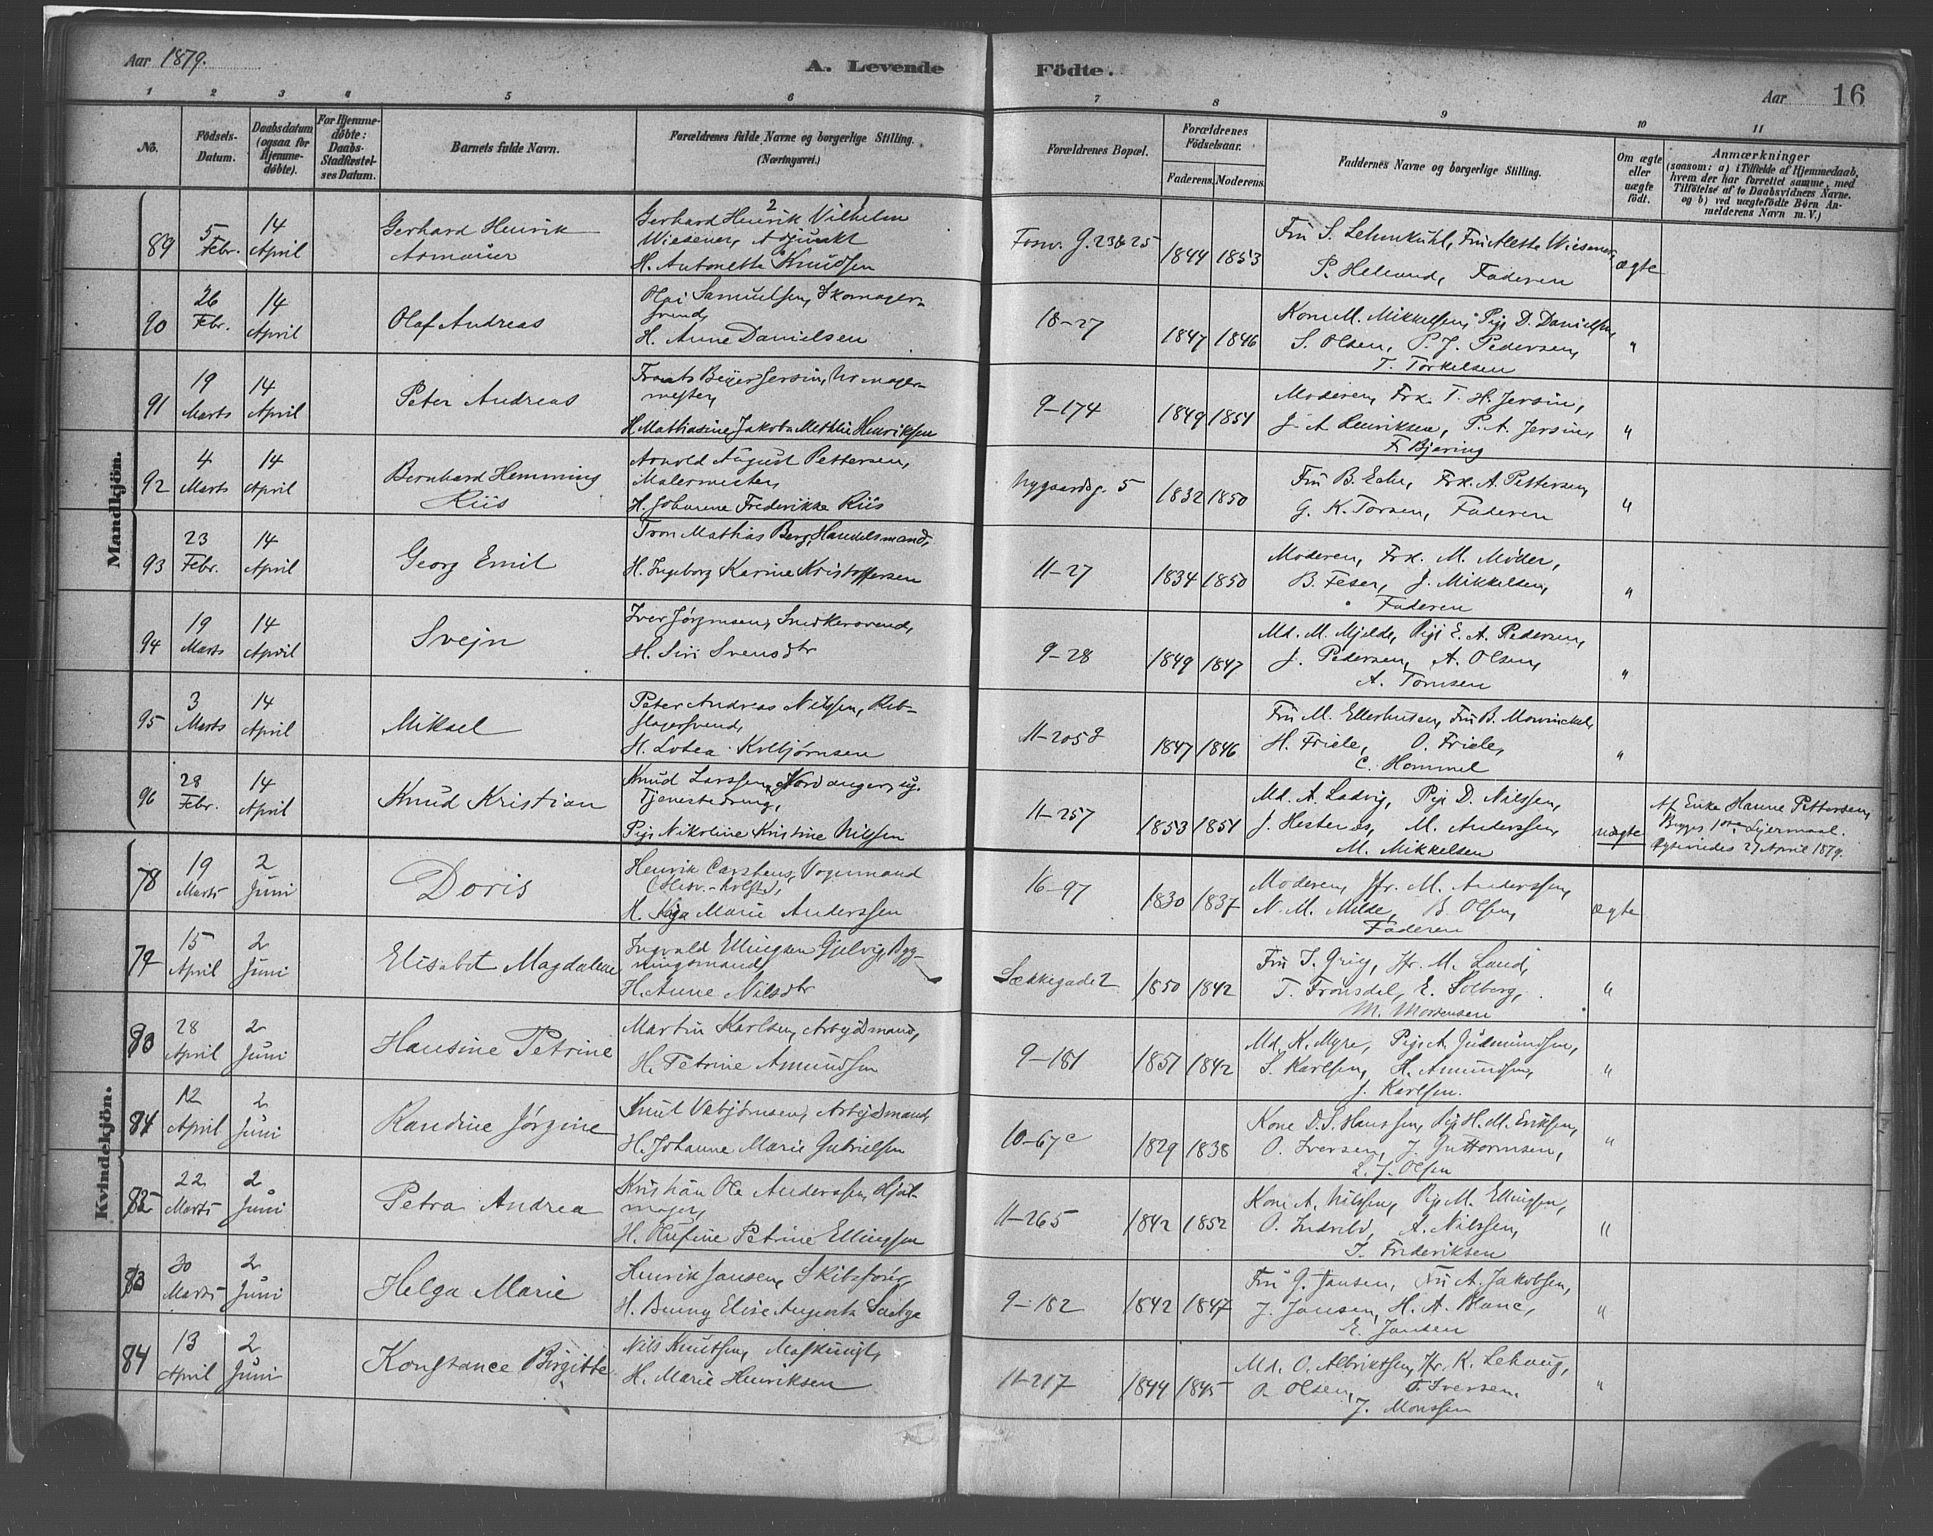 Aar 1879.
A. Levende Födte.
Aar 16
1 2 3 4 5 6 7 8 9 10 11
No.
Födsels-Datum.
Daabsdatum (ogsaa for Hjemme-döbte).
For Hjemme-döbte: Daabs-Stadfæstel-ses Datum.
Barnets fulde Navn.
Forældrenes fulde Navne og borgerlige Stilling. (Næringsvei.)
Forældrenes Bopæl.
Forældrenes Födselsaar.
Faderens. Moderens.
Faddernes Navne og borgerlige Stilling.
Om ægte eller uægte födt.
Anmærkninger
(saasom: a) i Tilfælde af Hjemmedaab, hvem der har forrettet samme, med Tilföielse af to Daabsvidners Navne. og b) ved uægtefödte Börn Anmelderens Navn m. V.)
Mandkjön.
89 5 Febr. 14 April
Gerhard Henrik
Armauer
Gerhard Henrik Vilhelm
Wiesener, Adjunkt
H. Antonette Knudsen
Fosw. G. 23 & 25 1844 1853
Fru S. Lehmkuhl, Fru Aletta Wiesener,
P. Heluand, Faderen
ægte
90 26 Febr. 14 April
Olaf Andreas
Olai Samuelsen, Skomager-
svend,
H. Anne Danielsen
18-27 1847 1846
Kone M. Mikkelsen, Pige D. Danielsen,
S. Olsen, P. J. Pedersen,
T. Torkelsen
"
91 19 Marts 14 April
Peter Andreas
Frants Beyer Jersin, Urmager-
mester,
H. Mathasine Jakoba Methlie Henriksen
9-174 1849 1854
Moderen, Frk. T. H. Jersin,
J. A. Henriksen, P. A. Jersin,
F. Bjering
"
92 4 Marts 14 April
Bernhard Hemming
Riis
Arnold August Pettersen,
Malermester,
H. Johanne Frederikke Riis
Nygaardsg. 5 1832 1850
Fru B. Eche, Frk. A. Pettersen,
G. K. Torsen, Faderen
"
93 23 Febr. 14 April
Georg Emil
Tron Mathias Berg, Handelsmand,
H. Ingeborg Karine Kristoffersen
11-27 1834 1850
Moderen, Frk. M. Möder,
B. Feser, J. Mikkelsen,
Faderen
"
94 19 Marts 14 April
Svejn
Iver Jørgensen, Snedkersvend,
H. Siri Svensdtr
9-28 1849 1847
Md. M. Mjelde, Pige E. A. Pedersen,
J. Pedersen, A. Olsen,
A. Tomsen
"
95 3 Marts 14 April
Mikael
Peter Andreas Nilssen, Reb-
slagersvend,
H. Lovea Kolbjørnsen
11-205 1847 1846
Fru M. Ellerhusen, Fru B. Mowinckel,
H. Friele, O. Friele,
C. Hammel
"
96 28 Febr. 14 April
Knud Kristian
Knud Larssen Nordanger, ug.
Tjenestedreng,
Pige Nikoline Kristine Nilssen
11-257 1853 1854
Md. A. Ladvig, Pige D. Nilssen,
J. Hestenes, M. Anderssen,
M. Mikkelsen
uægte
Af Enke Hanne Pettersen,
Begges 1ste Lejermaal.
27 April 1879.
Kvindekjön.
78 19 Marts 2 Juni
Doris
Henrik Carstens, Vognmand
H. Kaja Marie Anderssen
16-97 1830 1837
Moderen, Jfr. M. Anderssen,
N. M. Milde, B. Olsen,
Faderen
ægte
79 15 April 2 Juni
Elisabet Magdalene
Ingvald Ellingsen Gjelvig, Byg-
ningsmand
H. Anne Nilsdtr
Sækkegade 2 1850 1842
Fru I. Grieg, Jfr. M. Lund,
T. Fronsdal, E. Solberg,
M. Mortensen
"
80 28 April 2 Juni
Hansine Petrine
Martin Karlsen, Arbejdsmand,
H. Petrine Amundsen
9-181 1851 1842
Md. K. Myre, Pige A. Gudmundsen,
S. Karlsen, H. Amundsen,
J. Karlsen.
"
81 12 April 2 Juni
Randine Jørgine
Knut Vebjørnsen, Arbejdsmand,
H. Johanne Marie Gabrielsen
10-67c 1829 1838
Kone D. S. Hanssen, Pige H. M. Eriksen,
O. Iversen, J. Guttormsen,
L. J. Olsen
"
82 22 Marts 2 Juni
Petra Andrea
Kristian Ole Anderssen, Hjul-
mager,
H. Olufine Petrine Ellingsen
11-265 1842 1852
Kone A. Nilssen, Pige M. Ellingsen,
O. Indrelid, A. Nilssen,
I. Frideriksen
"
83 30 Marts 2 Juni
Helga Marie
Henrik Jansen, Skibsfører,
H. Benny Elise Augusta
9-182 1842 1847
Fru G. Jansen, Fru A. Jakobsen,
J. Jansen, H. A. Blanc,
E. Jansen
"
84 13 April 2 Juni
Konstance Birgitte
Nils Knutsen, Maskinist,
H. Marie Henriksen
11-217 1844 1845
Md. O. Albriktsen, Jfr. K. Lehaug,
O. Olsen, T. Iversen,
J. Monssen
"